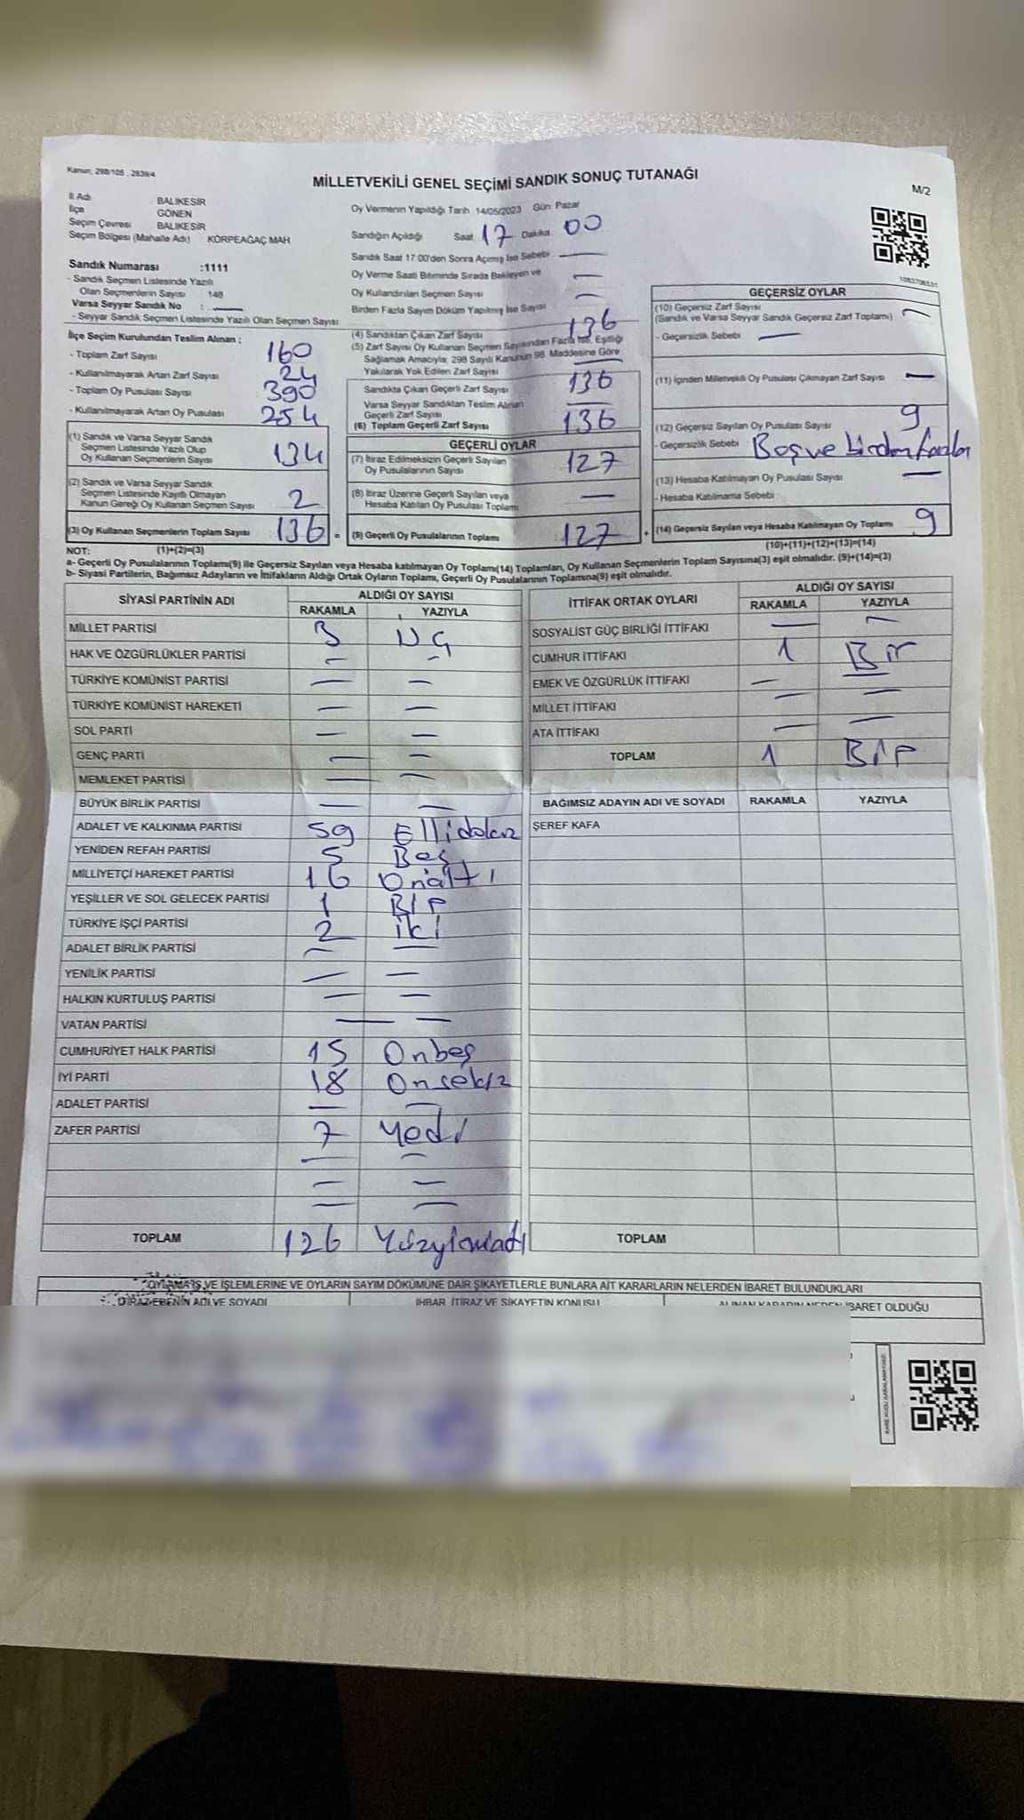 Kanun, 298/105 , 2839/4
MİLLETVEKİLİ GENEL SEÇİMİ SANDIK SONUÇ TUTANAĞI
M/2
İl Adı BALIKESİR
İlçe GÖNEN
Seçim Çevresi BALIKESİR
Seçim Bölgesi (Mahalle Adı) KÖRPEAĞAÇ MAH
Oy Vermenin Yapıldığı Tarih 14/05/2023 Gün Pazar
Sandığın Açıldığı Saat 17 Dakika 00
Sandık Saat 17:00'den Sonra Açımış İse Sebebi —
Oy Verme Saati Bitiminde Sırada Bekleyen ve —
Oy Kullandırılan Seçmen Sayısı —
Birden Fazla Sayım Döküm Yapılmış İse Sayısı
Sandık Numarası :1111
- Sandık Seçmen Listesinde Yazılı
Olan Seçmenlerin Sayısı 148
Varsa Seyyar Sandık No : —
- Seyyar Sandık Seçmen Listesinde Yazılı Olan Seçmen Sayısı
İlçe Seçim Kurulundan Teslim Alınan :
- Toplam Zarf Sayısı 160
- Kullanılmayarak Artan Zarf Sayısı 24
- Toplam Oy Pusulası Sayısı 390
- Kullanılmayarak Artan Oy Pusulası 254
(1) Sandık ve Varsa Seyyar Sandık
Seçmen Listesinde Yazılı Olup
Oy Kullanan Seçmenlerin Sayısı 134
(2) Sandık ve Varsa Seyyar Sandık
Seçmen Listesinde Kayıtlı Olmayan
Kanun Gereği Oy Kullanan Seçmen Sayısı 2
(3) Oy Kullanan Seçmenlerin Toplam Sayısı 136 =
(1)+(2)=(3)
(4) Sandıktan Çıkan Zarf Sayısı 136
(5) Zarf Sayısı Oy Kullanan Seçmen Sayısından Fazla İse, Eşitliği
Sağlamak Amacıyla; 298 Sayılı Kanunun 98. Maddesine Göre
Yakılarak Yok Edilen Zarf Sayısı —
Sandıkta Çıkan Geçerli Zarf Sayısı 136
Varsa Seyyar Sandıktan Teslim Alınan
Geçerli Zarf Sayısı —
(6) Toplam Geçerli Zarf Sayısı 136
GEÇERLİ OYLAR
(7) İtiraz Edilmeksizin Geçerli Sayılan
Oy Pusulalarının Sayısı 127
(8) İtiraz Üzerine Geçerli Sayılan veya
Hesaba Katılan Oy Pusulası Toplamı —
(9) Geçerli Oy Pusulalarının Toplamı 127 +
GEÇERSİZ OYLAR
(10) Geçersiz Zarf Sayısı
(Sandık ve Varsa Seyyar Sandık Geçersiz Zarf Toplamı) —
- Geçersizlik Sebebi —
(11) İçinden Milletvekili Oy Pusulası Çıkmayan Zarf Sayısı —
(12) Geçersiz Sayılan Oy Pusulası Sayısı 9
- Geçersizlik Sebebi Boş ve birden fazla
(13) Hesaba Katılmayan Oy Pusulası Sayısı —
- Hesaba Katılmama Sebebi
(14) Geçersiz Sayılan veya Hesaba Katılmayan Oy Toplamı 9
(10)+(11)+(12)+(13)=(14)
NOT:
a- Geçerli Oy Pusulalarının Toplamı(9) ile Geçersiz Sayılan veya Hesaba katılmayan Oy Toplamı(14) Toplamları, Oy Kullanan Seçmenlerin Toplam Sayısına(3) eşit olmalıdır. (9)+(14)=(3)
b- Siyasi Partilerin, Bağımsız Adayların ve İttifakların Aldığı Ortak Oyların Toplamı, Geçerli Oy Pusulalarının Toplamına(9) eşit olmalıdır.
SİYASİ PARTİNİN ADI ALDIĞI OY SAYISI
RAKAMLA YAZIYLA
MİLLET PARTİSİ 3 Üç
HAK VE ÖZGÜRLÜKLER PARTİSİ — —
TÜRKİYE KOMÜNİST PARTİSİ — —
TÜRKİYE KOMÜNİST HAREKETİ — —
SOL PARTİ — —
GENÇ PARTİ — —
MEMLEKET PARTİSİ — —
BÜYÜK BİRLİK PARTİSİ — —
ADALET VE KALKINMA PARTİSİ 59 Ellidokuz
YENİDEN REFAH PARTİSİ 5 Beş
MİLLİYETÇİ HAREKET PARTİSİ 16 Onaltı
YEŞİLLER VE SOL GELECEK PARTİSİ 1 Bir
TÜRKİYE İŞÇİ PARTİSİ 2 iki
ADALET BİRLİK PARTİSİ — —
YENİLİK PARTİSİ — —
HALKIN KURTULUŞ PARTİSİ — —
VATAN PARTİSİ — —
CUMHURİYET HALK PARTİSİ 15 Onbeş
İYİ PARTİ 18 Onsekiz
ADALET PARTİSİ — —
ZAFER PARTİSİ 7 Yedi
— —
— —
— —
TOPLAM 126 Yüzyirmialtı
İTTİFAK ORTAK OYLARI ALDIĞI OY SAYISI
RAKAMLA YAZIYLA
SOSYALİST GÜÇ BİRLİĞİ İTTİFAKI — —
CUMHUR İTTİFAKI 1 Bir
EMEK VE ÖZGÜRLÜK İTTİFAKI — —
MİLLET İTTİFAKI — —
ATA İTTİFAKI — —
TOPLAM 1 Bir
BAĞIMSIZ ADAYIN ADI VE SOYADI RAKAMLA YAZIYLA
ŞEREF KAFA
TOPLAM
VE İŞLEMLERİNE VE OYLARIN SAYIM DÖKÜMÜNE DAİR ŞİKAYETLERLE BUNLARA AİT KARARLARIN NELERDEN İBARET BULUNDUKLARI
ADI VE SOYADI İHBAR, İTİRAZ VE ŞİKAYETİN KONUSU ALINAN KARARIN NEDEN İBARET OLDUĞU